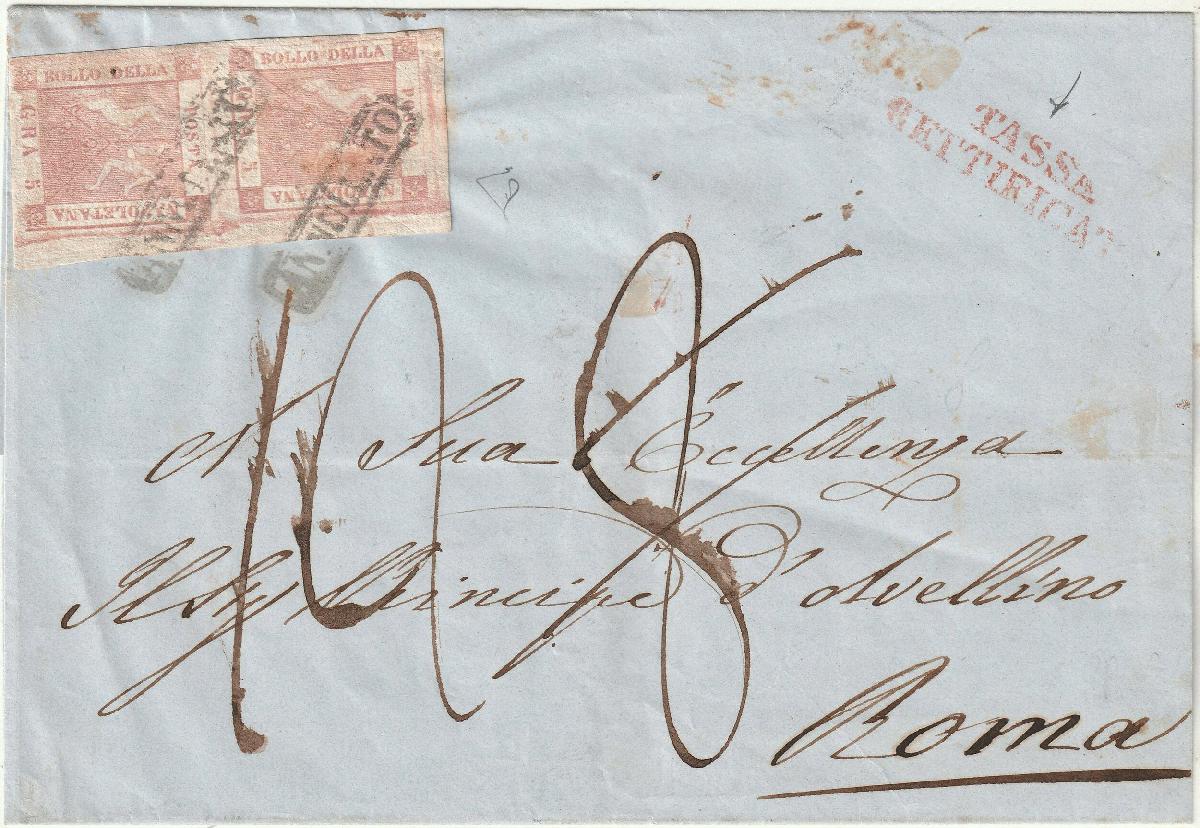 BOLLO DELLA
POSTA
NAPOLETANA
GRA 5
BOLLO DELLA
POSTA
NAPOLETANA
ANNULLATO
ANNULLATO
TASSA
RETTIFICATA
A Sua Eccellenza
Il Sig Principe d'Avellino
Roma